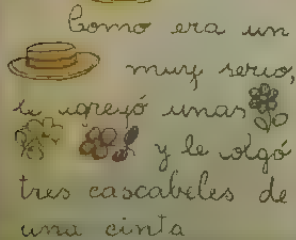 Como era un
muy serio,
le agregó unas
y le colgó
tres cascabeles de
una cinta